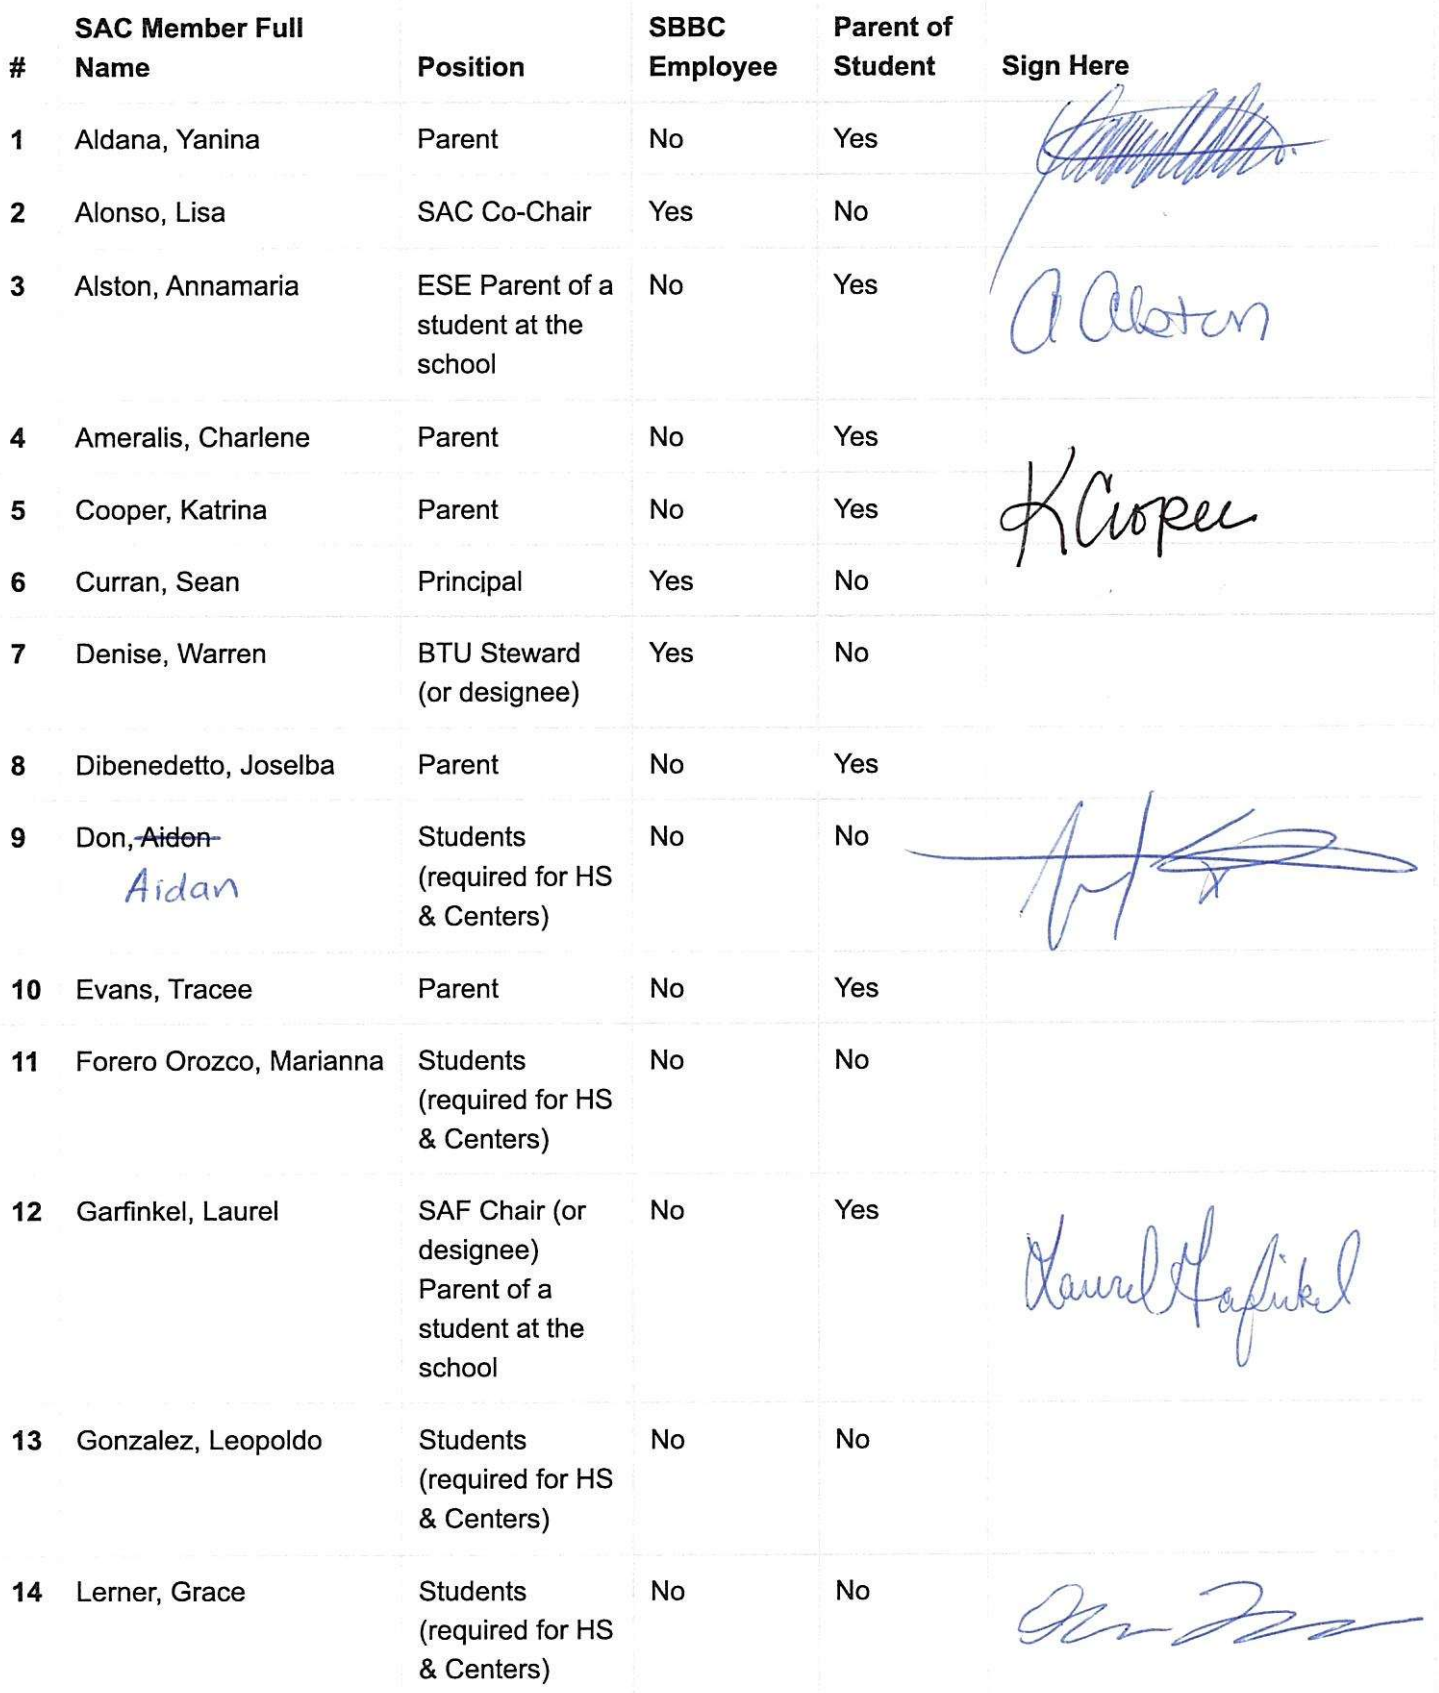 SAC Member Full Name Position SBBC Employee Parent of Student Sign Here
# 
1 Aldana, Yanina Parent No Yes
2 Alonso, Lisa SAC Co-Chair Yes No
3 Alston, Annamaria ESE Parent of a No Yes A Alston
student at the
school
4 Ameralis, Charlene Parent No Yes
5 Cooper, Katrina Parent No Yes K Cooper
6 Curran, Sean Principal Yes No
7 Denise, Warren BTU Steward Yes No
(or designee)
8 Dibenedetto, Joselba Parent No Yes
9 Don, Aidon Students No No
Aidan (required for HS
& Centers)
10 Evans, Tracee Parent No Yes
11 Forero Orozco, Marianna Students No No
(required for HS
& Centers)
12 Garfinkel, Laurel SAF Chair (or No Yes
designee)
Parent of a Laurel Garfinkel
student at the
school
13 Gonzalez, Leopoldo Students No No
(required for HS
& Centers)
14 Lerner, Grace Students No No
(required for HS
& Centers)